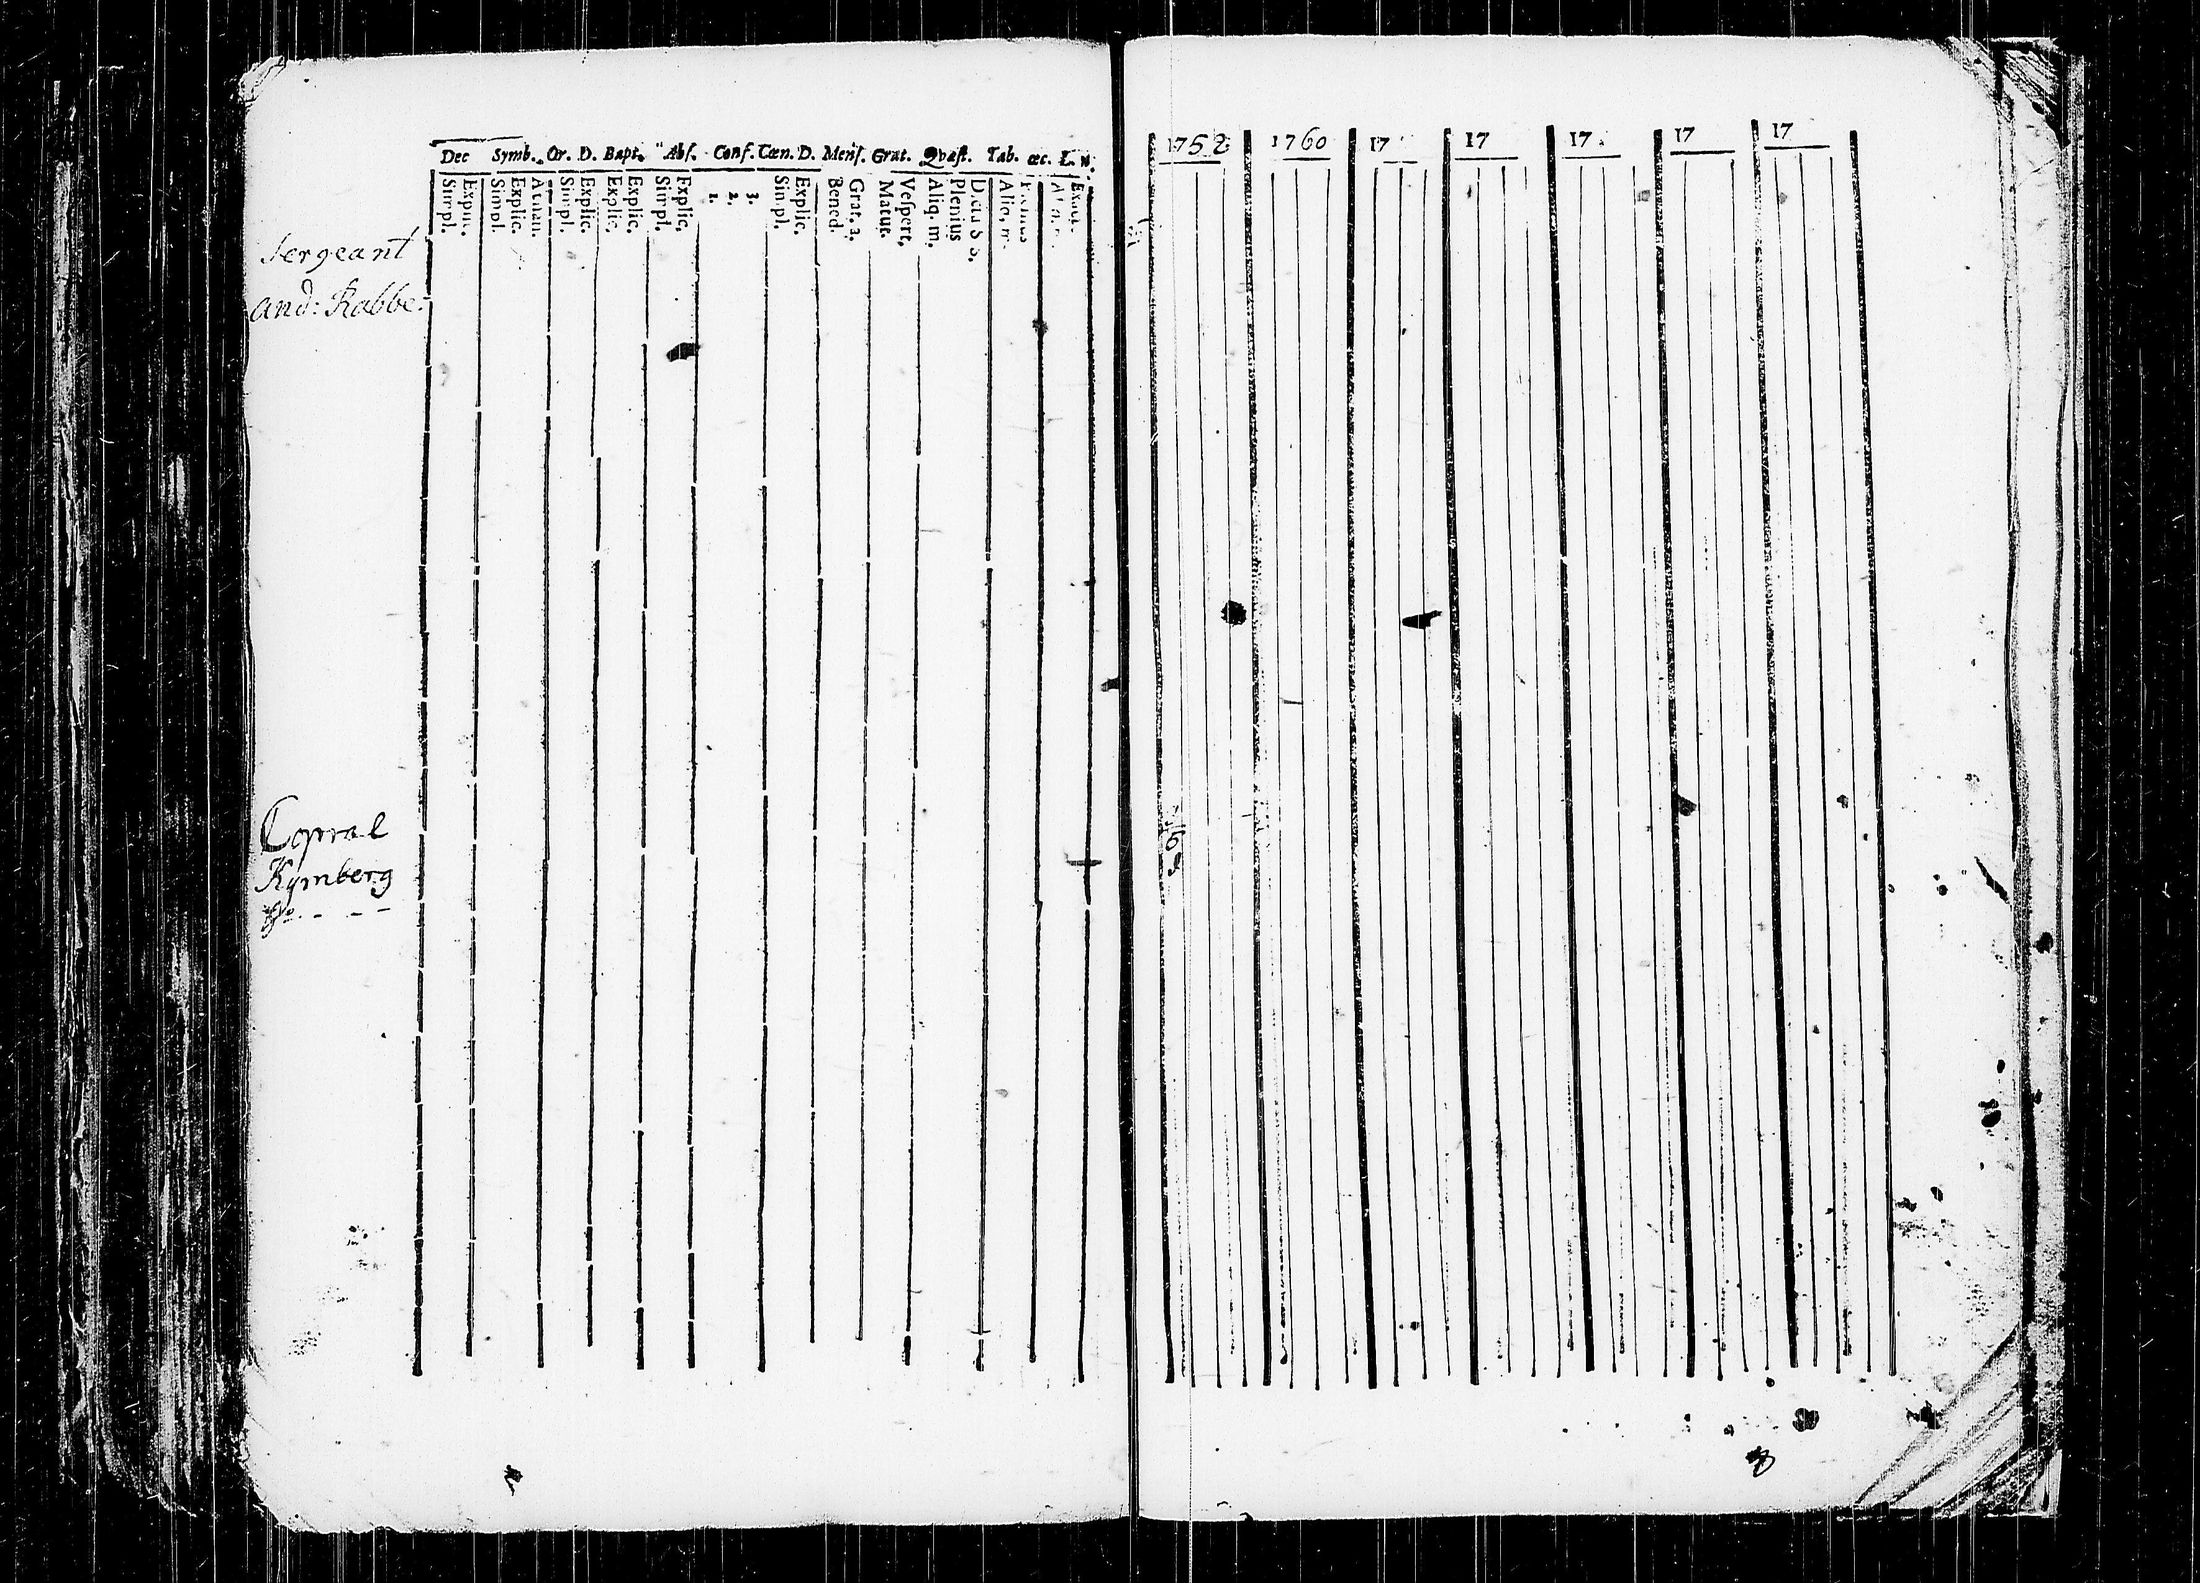 Dec Symb. Or. D. Bapt. Abs. Conf. Cœn. D. Mens. Grat. Qvæst. Tab. œc.
Simpl.
Simpl.
Explic.
Simpl.
Explic.
Explic.
Explic.
Simpl.
Explic.
1.
2.
3.
Simpl.
Explic.
Bened.
Grat. a.
Matut.
Vespert.
Aliq. m.
Plenius
Dicta S S.
Aliq. m.
Plenius
Sergeant
And: Rabbe.
Copral
Kymberg
1758 1760 17 17 17 17 17